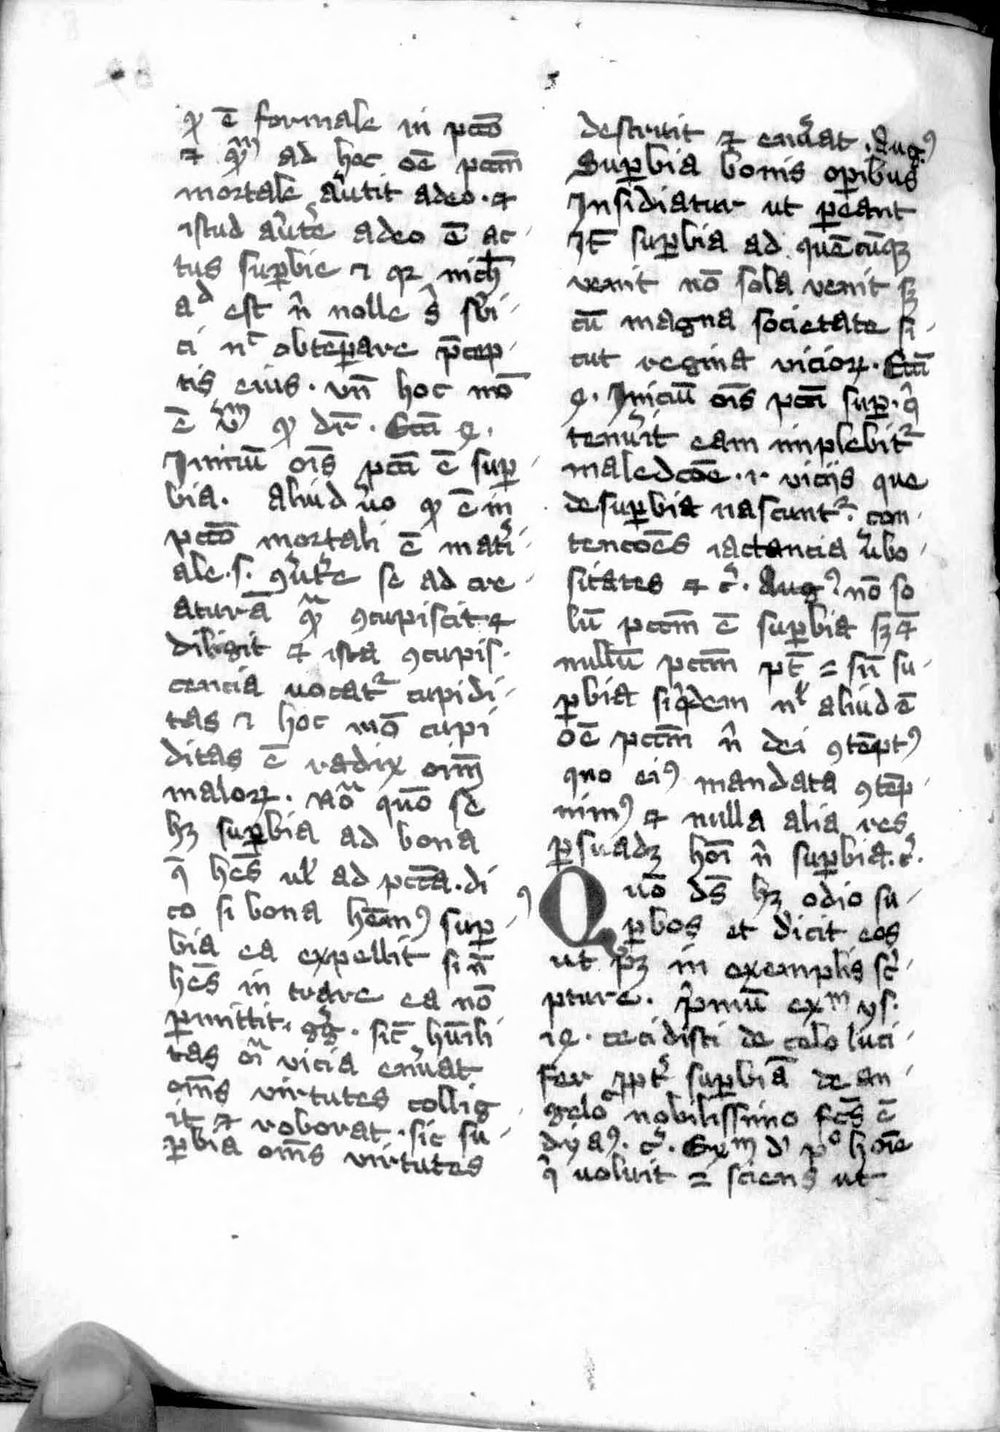 ꝙ ē formale in pctō
⁊ qᷓ ad hoc oē pctm̄
mortale av̓tit a deo · ⁊
istud av̓te̓ a deo ē ac
tus suꝑbie ⁊ qꝛ nich̄
ad est n̄ nolle sb̓i
ci nᶜ obteꝑare p̄cep
tis eius · vn̄ hoc mō
ē v̓ꝫ ꝙ dr̄ · Eccī
Iniciū oīs pctī ē suꝑ
bia · aliud v̓o ꝙ ē in
pctō mortali ē mat̓i
ale · s · ꝯv̓te̓e se ad cre
aturā qᷓ ꝯcupiscit ⁊
diligit ⁊ ista ꝯcupis
cencia uocatᷣ cupidi
tas ⁊ hoc mō cupi
ditas ē radix oīm
maloꝝ · Nōᷓ quō se
hꝫ suꝑbia ad bona
q̄ hēs ul̓ ad pctā · di
co si bona hēmꝰ suꝑ
bia ea expellit si n̄
hēs in trare ea nō
ꝑmittit · gg̓ · sic̄ hūili
tas oīᷓ vicia en̓vat
om̄s virtutes collig
it ⁊ roborat · sic su
ꝑbia om̄s virtutes
destruit ⁊ en̓uat · Augꝰ
Suꝑbia bonis oꝑibus
Insidiatur ut ꝑeant
It̄ suꝑbia ad quēcūqꝫ
venit nō sola venit sꝫ
cū magna societate si
cut regina vicioꝝ · Eccī
Iniciū oīs pctī suꝑ · q̓
tenu̓it eam implebitᷣ
maledcōe · i · viciis que
de suꝑbia nascuntᷣ · con
tencōes iactancia v̓bo
sitates ⁊ c̓ · Augꝰ · nō so
lū pctm̄ ē suꝑbia sꝫ ⁊
nullū pctm̄ pt̄ = sn̄ su
ꝑbia siq̓dem nl̓ aliud ē
oē pctm̄ n̄ dei ꝯtēptꝰ
quo eiꝰ mandata ꝯtēp
nimꝰ ⁊ nulla alia res
ꝑsuadꝫ hoī n̄ suꝑbia · c̓ ·
Quō ds̄ hꝫ odio su
ꝑbos et dicit eos
ut pꝫ in exemplis sc̓i
pture · p̓mū exᵐ ys ·
cecidisti de celo luci
fer ꝓpt̓ suꝑbiā de an
gelo nobilissimo fcs̄ ē
dyaꝰ · c̓ · Exᵐ d̓ pᵒ hoīe
q̓ voluit = sciens ut